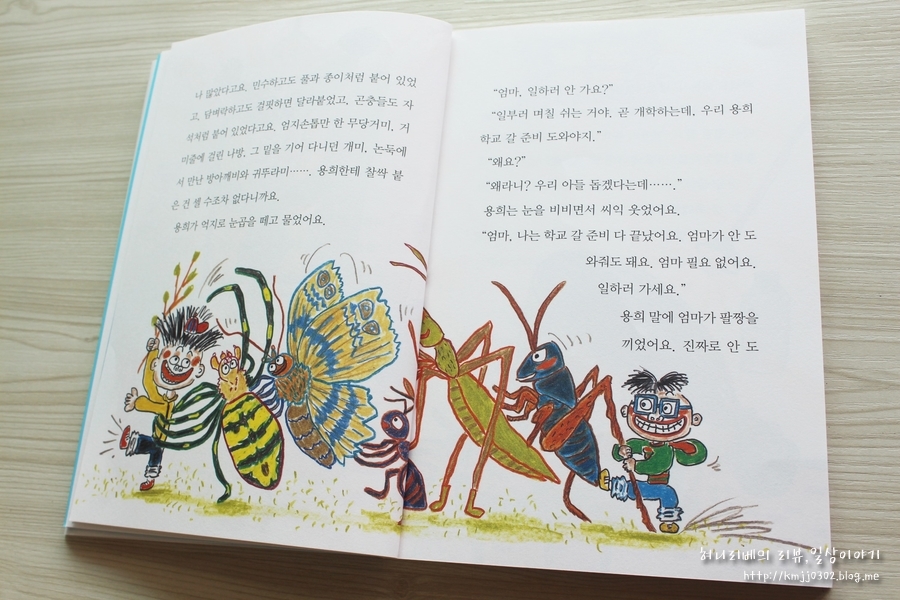 나 많았다고요. 민수하고도 풀과 종이처럼 붙어 있었
고, 담벼락하고도 걸핏하면 달라붙었고, 곤충들도 자
석처럼 붙어 있었다고요. 엄지손톱만 한 무당거미, 거
미줄에 걸린 나방, 그 밑을 기어 다니던 개미, 논둑에
서 만난 방아깨비와 귀뚜라미……. 용희한테 찰싹 붙
은 건 셀 수조차 없다니까요.
용희가 억지로 눈곱을 떼고 물었어요.
“엄마, 일하러 안 가요?”
“일부러 며칠 쉬는 거야. 곧 개학하는데. 우리 용희
학교 갈 준비 도와야지.”
“왜요?”
“왜라니? 우리 아들 돕겠다는데…….”
용희는 눈을 비비면서 씨익 웃었어요.
“엄마, 나는 학교 갈 준비 다 끝났어요. 엄마가 안 도
와줘도 돼요. 엄마 필요 없어요.
일하러 가세요.”
용희 말에 엄마가 팔짱을
끼었어요. 진짜로 안 도
허니리베의 리뷰,일상이야기
http://kmjj0302.blog.me